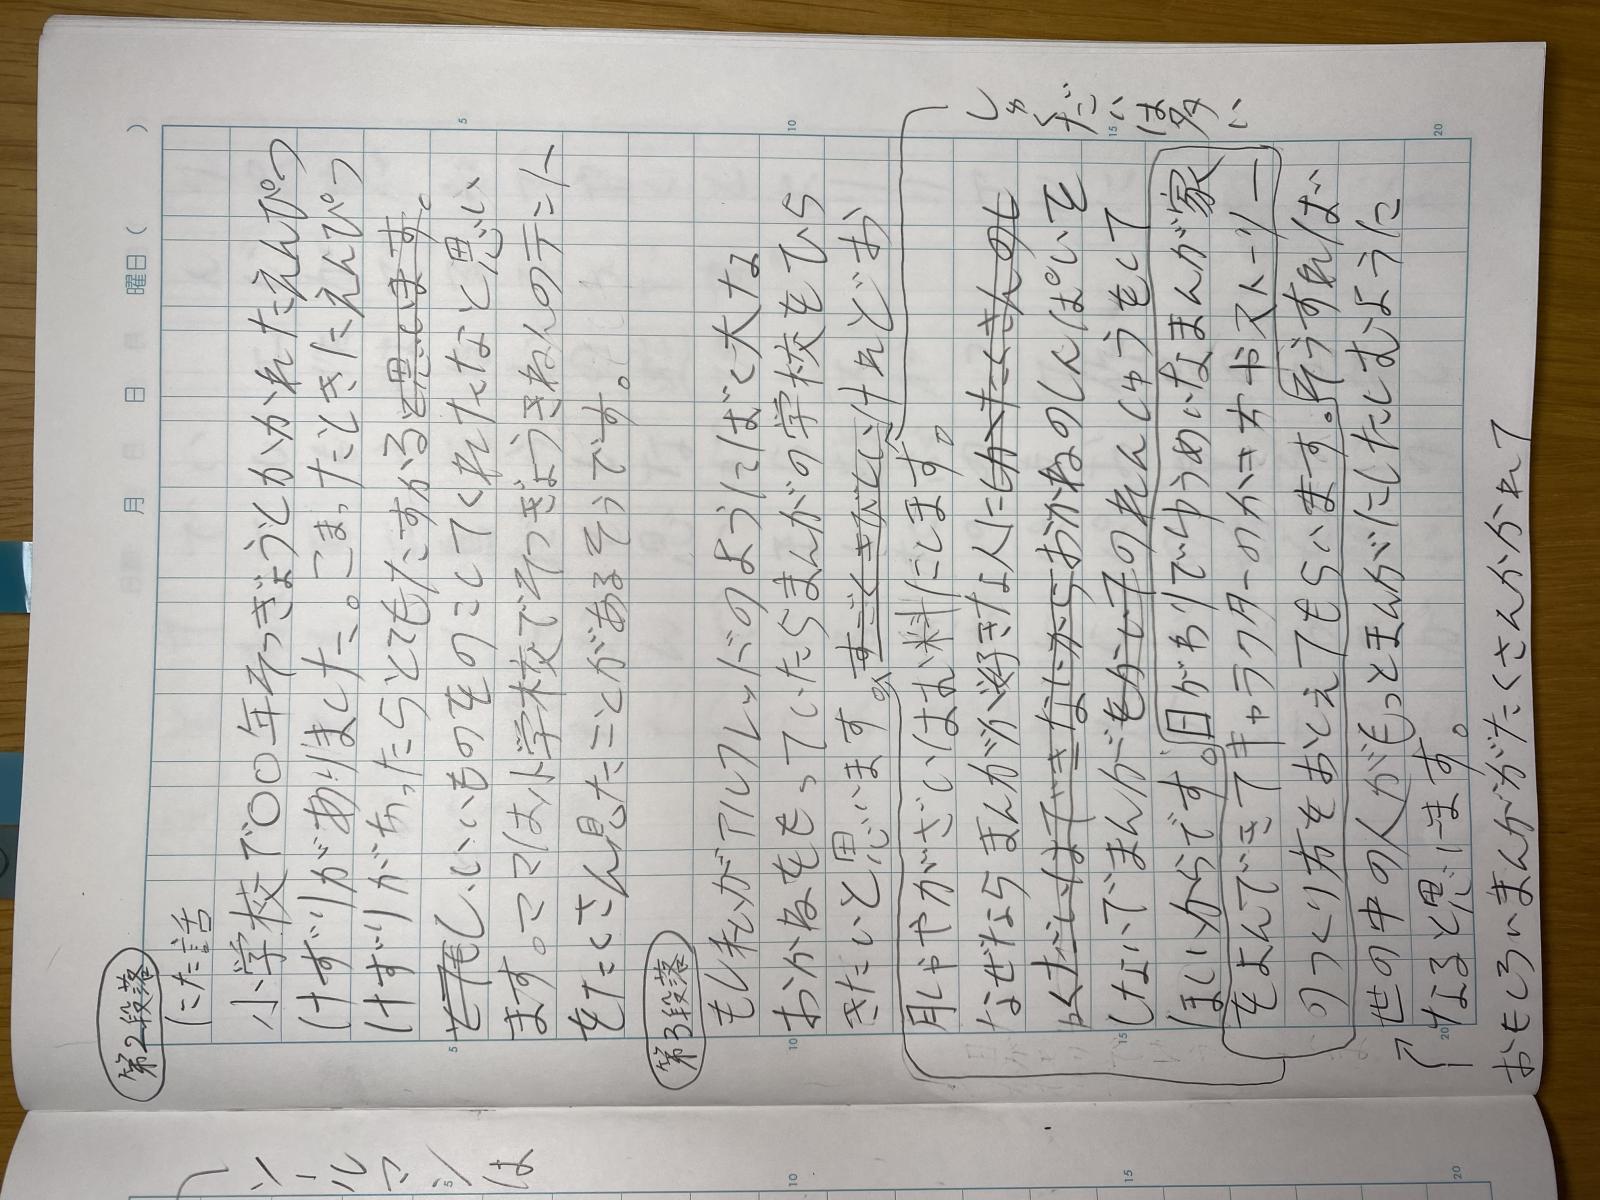 月 日 曜日( )
第2段落
にた話
小学校で〇〇年そつぎょうとかかれたえんぴつ
けずりがありました。こまったときにえんぴつ
けずりがあったらとてもたすかると思います。
とてもしいいものをのこしてくれたなと思い
ます。ママは小学校でそつぎょうきねんのテント
をたくさん見たことがあるそうです。
第3段落
もし私がアルフレッドのようにばく大な
おかねをもっていたらまんがの学校をひら
きたいと思います。すごくきびしいけれどお
月しゃやがざいはお料にします。
しゅくだいは多い
なぜならまんがが好きな人には
おかねのしんぱいを
しないでまんが
のれんしゅうをして
ほしいからです。日がわりでゆうめいなまんが家
をよんできてキャラクターのかき方やストーリー
のつくり方をおしえてもらいます。そうすれば
世の中の人がもっとまんがにしたしむように
なると思います。
おもしろいまんががたくさんかかれて
ソールマンは